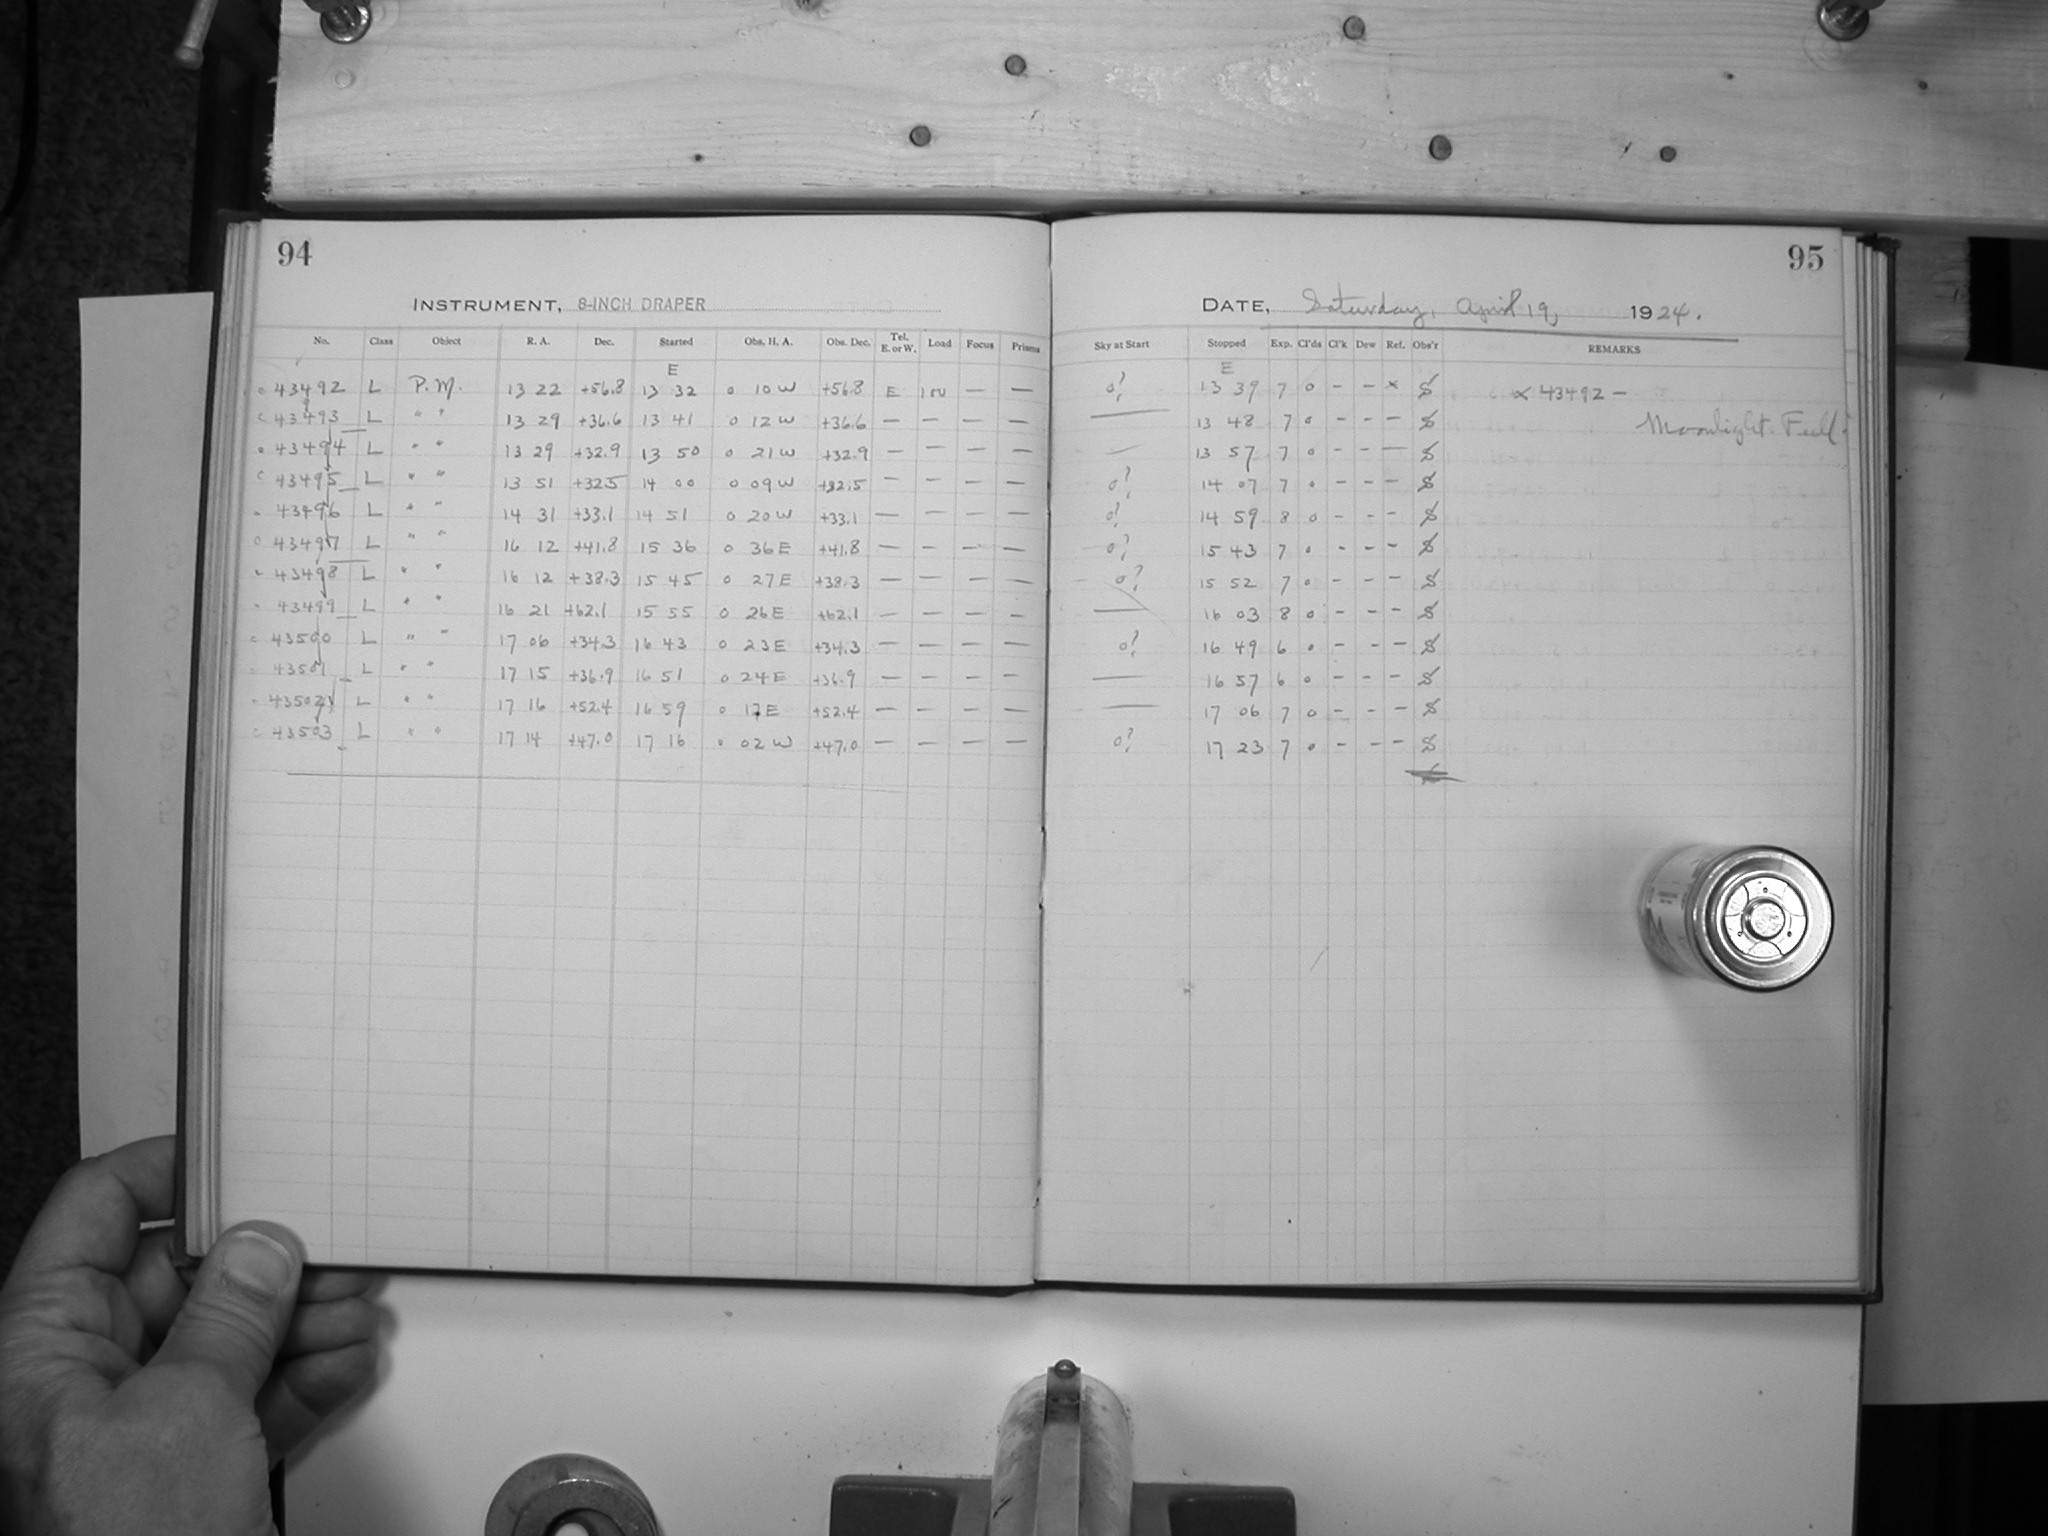 94
INSTRUMENT, 8-INCH DRAPER
No. Class Object R. A. Dec. Started Obs. H. A. Obs. Dec. Tel. E. or W. Load Focus Prisms
E
43492 L P. M. 13 22 +56.8 13 32 0 10 W +56.8 E 100 — —
43493 L " " 13 29 +36.6 13 41 0 12 W +36.6 — — — —
43494 L " " 13 29 +32.9 13 50 0 21 W +32.9 — — — —
43495 L " " 13 51 +32.5 14 00 0 09 W +32.5 — — — —
43496 L " " 14 31 +33.1 14 51 0 20 W +33.1 — — — —
43497 L " " 16 12 +41.8 15 36 0 36 E +41.8 — — — —
43498 L " " 16 12 +38.3 15 45 0 27 E +38.3 — — — —
43499 L " " 16 21 +62.1 15 55 0 26 E +62.1 — — — —
43500 L " " 17 06 +34.3 16 43 0 23 E +34.3 — — — —
43501 L " " 17 15 +36.9 16 51 0 24 E +36.9 — — — —
43502 L " " 17 16 +52.4 16 59 0 17 E +52.4 — — — —
43503 L " " 17 14 +47.0 17 16 0 02 W +47.0 — — — —
95
DATE, Saturday, April 19, 1924.
Sky at Start Stopped Exp. Cl'ds Cl'k Dew Ref. Obs'r REMARKS
E
0? 13 39 7 0 - - × S ∝ 43492 —
— 13 48 7 0 - - - S Moonlight. Full.
— 13 57 7 0 - - — S
0? 14 07 7 0 - - - S
0? 14 59 8 0 - - - S
0? 15 43 7 0 - - - S
0? 15 52 7 0 - - - S
— 16 03 8 0 - - - S
0? 16 49 6 0 - - - S
— 16 57 6 0 - - - S
— 17 06 7 0 - - - S
0? 17 23 7 0 - - - S